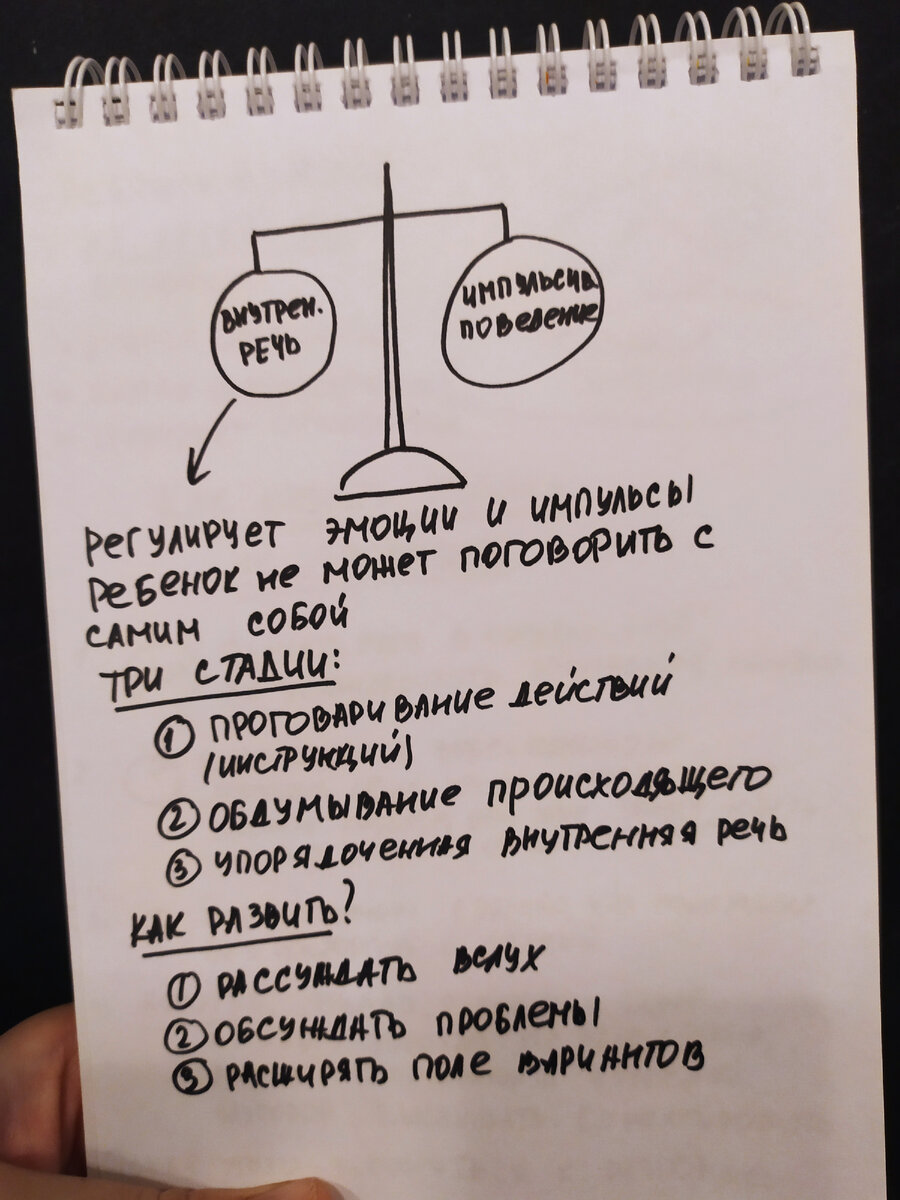 ВНУТРЕН.
РЕЧЬ
ИМПУЛЬСИВ
ПОВЕДЕНИЕ
РЕГУЛИРУЕТ ЭМОЦИИ И ИМПУЛЬСЫ
РЕБЕНОК НЕ МОЖЕТ ПОГОВОРИТЬ С
САМИМ СОБОЙ
ТРИ СТАДИИ:
① ПРОГОВАРИВАНИЕ ДЕЙСТВИЙ
(ИНСТРУКЦИЙ)
② ОБДУМЫВАНИЕ ПРОИСХОДЯЩЕГО
③ УПОРЯДОЧЕННАЯ ВНУТРЕННЯЯ РЕЧЬ
КАК РАЗВИТЬ?
① РАССУЖДАТЬ ВСЛУХ
② ОБСУЖДАТЬ ПРОБЛЕМЫ
③ РАСШИРЯТЬ ПОЛЕ ВАРИАНТОВ